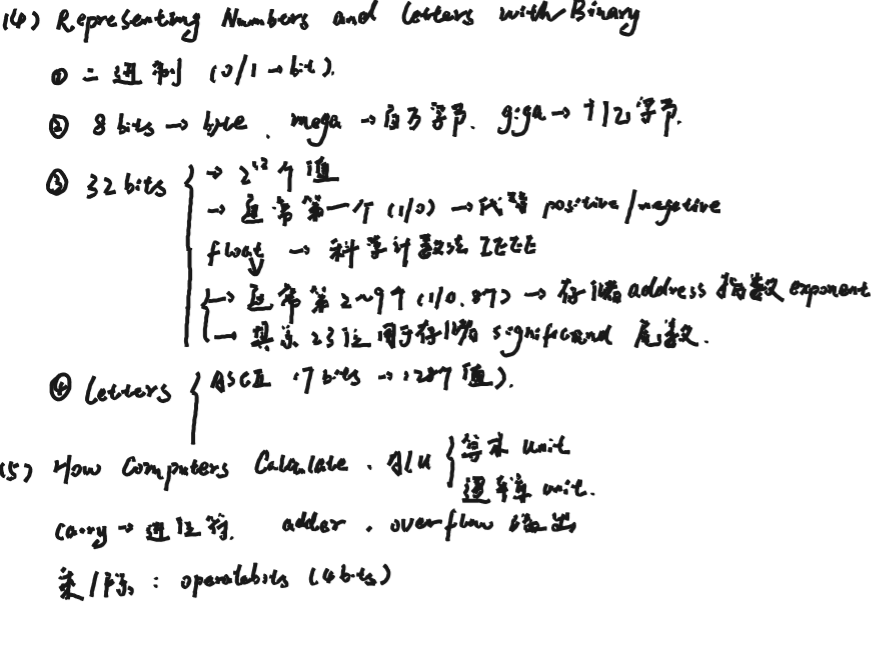 (4) Representing Numbers and letters with Binary
① 二进制 (0/1→bit).
② 8 bits → byte. mega → 百万字节. giga → 十亿字节.
③ 32 bits → 2³² 个值
→ 通常第一个 (1/0) → 代替 positive/negative
float → 科学计数法 IEEE
→ 通常第2~9个 (1/0. 8个) → 存储 address 指数 exponent
→ 其余23位用于存储 significand 尾数.
④ letters ASCII (7 bits → 128个值).
(5) How Computers Calculate. ALU 算术 unit
逻辑 unit.
carry → 进位符. adder. overflow 溢出
乘/除: (4 bits)